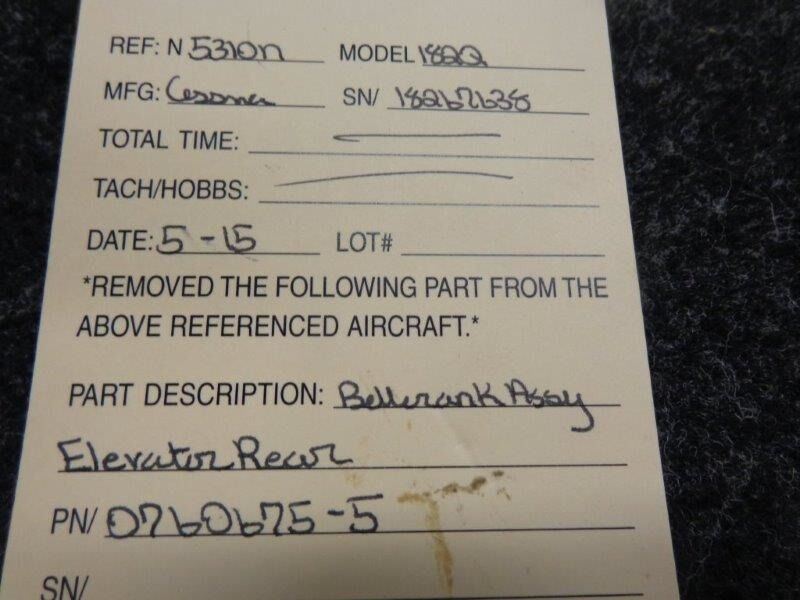 REF: N 5310N MODEL 182Q
MFG: Cessna SN/ 18267638
TOTAL TIME:
TACH/HOBBS:
DATE: 5-15 LOT#
*REMOVED THE FOLLOWING PART FROM THE
ABOVE REFERENCED AIRCRAFT.*
PART DESCRIPTION: Bellcrank Assy
Elevator Rear
PN/ 0760675-5
SN/